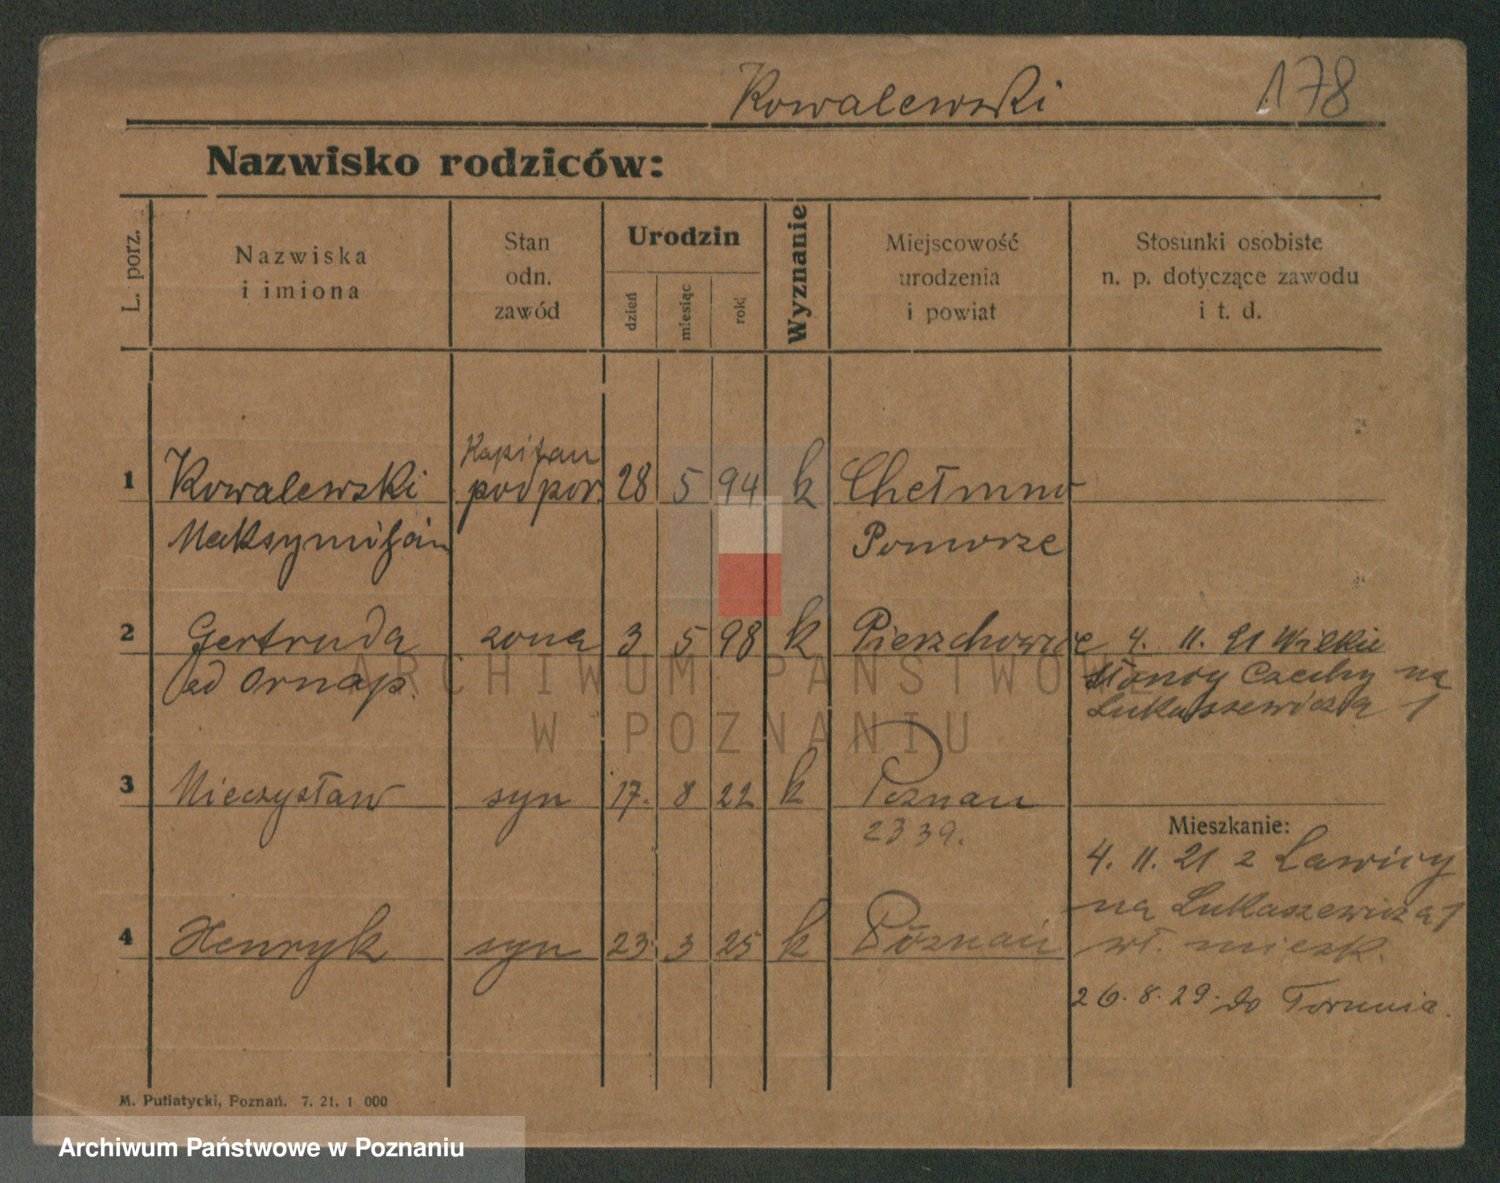 Kowalewski 178
Nazwisko rodziców:
L. porz.
Nazwiska
i imiona
Stan
odn.
zawód
Urodzin
dzień
miesiąc
rok
Wyznanie
Miejscowość
urodzenia
i powiat
Stosunki osobiste
n. p. dotyczące zawodu
i t. d.
Kapitan
1 Kowalewski podpor. 28 5 94 k Chełmno
Maksymiljan Pomorze
2 Gertruda żona 3 5 98 k 4. 11. 21 Wielkie
Czechy na
Łukaszewicza 1
3 Mieczysław syn 17. 8 22 k Poznań
2339.
Mieszkanie:
4. 11. 21 z Ławicy
na Łukaszewicza 1
4 Henryk syn 23 3 25 k Poznań wł. mieszk.
26. 8. 29. do Torunia.
M. Putiatycki, Poznań. 7. 21. 1 000
ARCHIWUM PAŃSTWOWE
W POZNANIU
Archiwum Państwowe w Poznaniu